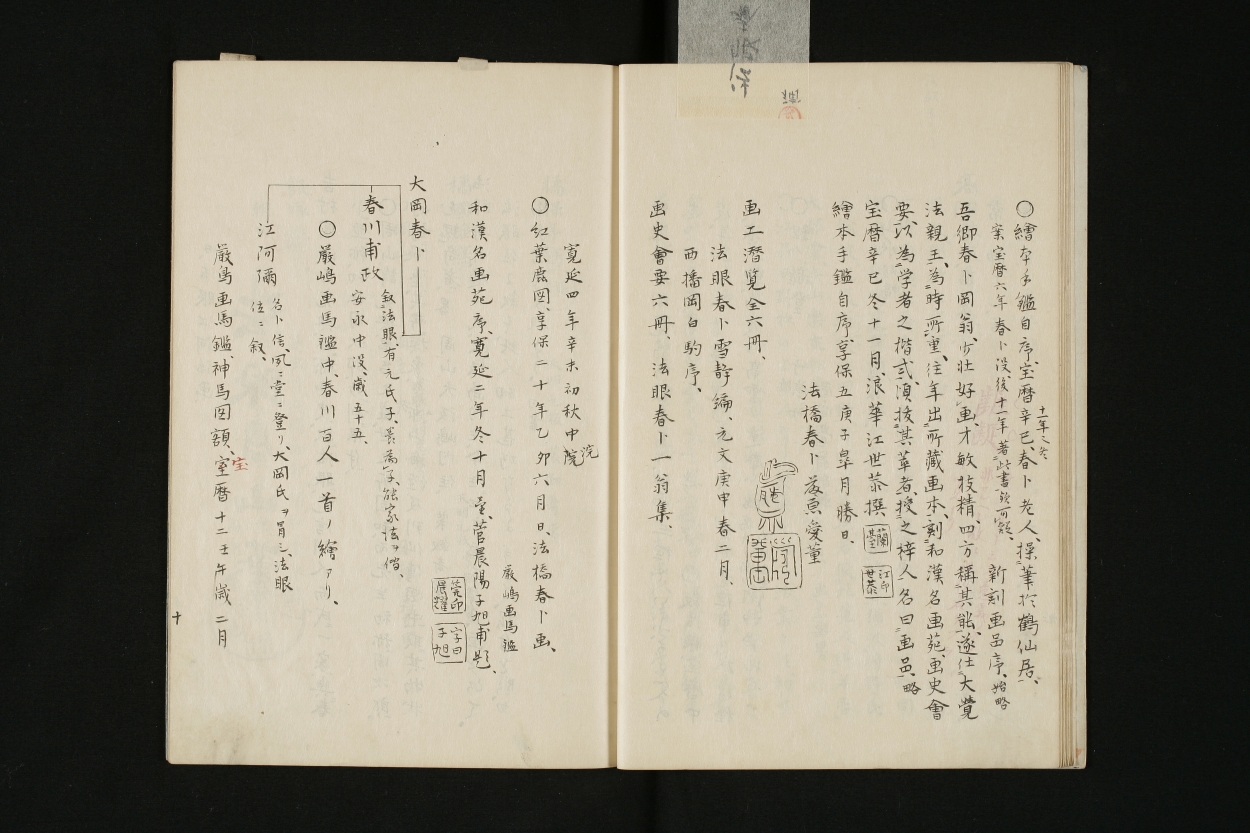 ○繪本手鑑自序、宝暦辛巳春卜老人、操筆於鶴仙居、
十一年之冬
案宝暦六年春卜没後十一年著此書説可疑、
新刻画品序、始略
吾郷春卜岡翁、少壮好画、才敏技精、四方稱其能、遂仕大覚
法親王、為時所重、往年出所藏画本、刻和漢名画苑、画史會
要、以為学者之楷式、須抜其華者、授之梓人、名曰画品、略
宝暦辛巳冬十一月、浪華江世恭撰
蘭臺
江印世恭
繪本手鑑自序、享保五庚子皐月勝日、
法橋春卜愛董
画工潜覧全六冊、
法眼春卜雪静編、元文庚申春二月、
西播岡白駒序、
画史會要六冊、法眼春卜一翁集、
寛延四年辛未初秋中院
院
○紅葉鹿図、享保二十年乙卯六月日、法橋春卜画、
嚴嶋画馬鑑
和漢名画苑序、寛延二年冬十月望、菅晨陽子旭甫題、
菅印晨耀
字曰子旭
大岡春卜
春川甫政
叙法眼、有元氏子、養為子、能家法ヲ偕、
安永中没、歳五十五、
○嚴嶋画馬鑑中、春川百人一首ノ繪アリ、
江阿彌
名卜信、夙ニ堂ニ登リ、大岡氏ヲ冒シ、法眼
位ニ叙、
嚴嶋画馬鑑神馬図額、室暦十二壬午歳二月
宝
十